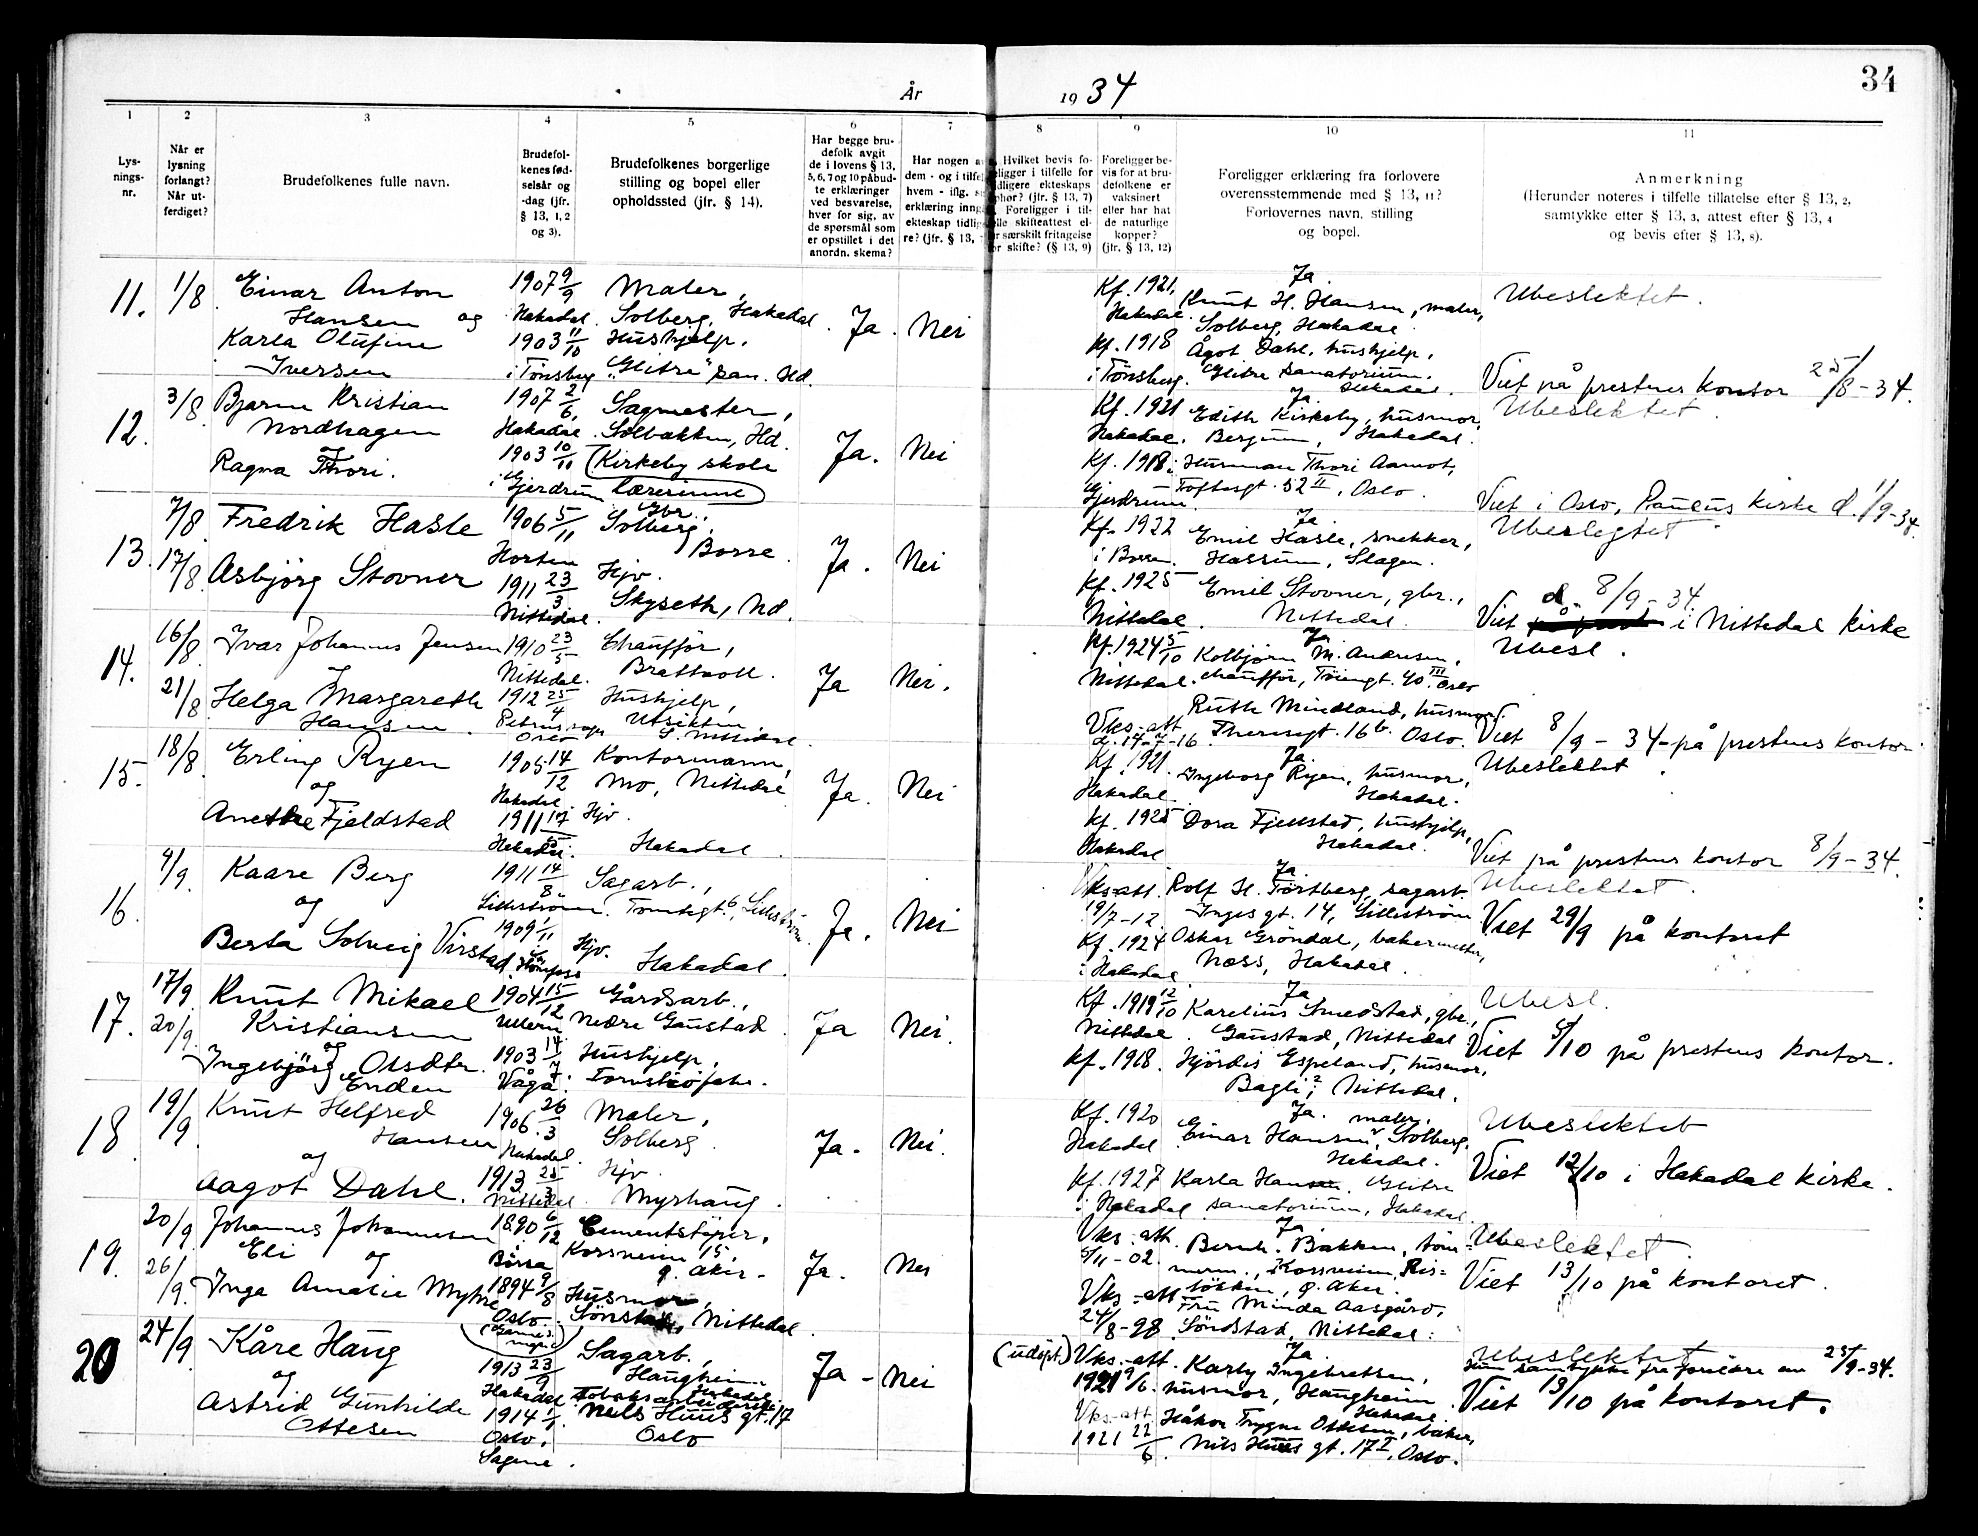 34
År 1934
1 2 3 4 5 6 7 8 9 10 11
Lys-
nings-
nr.
Når er
lysning
forlangt?
Når ut-
ferdiget?
Brudefolkenes fulle navn.
Brudefol-
kenes fød-
selsår og
-dag (jfr.
§ 13, 1, 2
og 3).
Brudefolkenes borgerlige
stilling og bopel eller
opholdssted (jfr. § 14).
Har begge bru-
defolk avgit
de i lovens § 13,
5, 6, 7 og 10 påbud-
te erklæringer
ved besvarelse,
hver for sig, av
de spørsmål som
er opstillet i det
anordn. skema?
Har nogen a
dem - og i tilfel
hvem - iflg. s
erklæring inng
ekteskap tidlig
re? (jfr. § 13,
Hvilket bevis fo-
eligger i tilfelle for
idligere ekteskaps
phør? (jfr. § 13, 7)
Foreligger i til-
elle skifteattest el-
r særskilt fritagelse
or skifte? (§ 13, 9)
Foreligger be-
vis for at bru-
defolkene er
vaksinert
eller har hat
de naturlige
kopper?
(jfr. § 13, 12)
Foreligger erklæring fra forlovere
overensstemmende med § 13, 11?
Forlovernes navn, stilling
og bopel.
Anmerkning
(Herunder noteres i tilfelle tillatelse efter § 13, 2,
samtykke efter § 13, 3, attest efter § 13, 4
og bevis efter § 13, 8).
11. 1/8
Einar Anton
Hansen og
Karla Olufine
Iversen
1907 9/9
Hakadal.
1903 11/10
i Tønsberg
Maler,
Solberg, Hakadal.
Hushjelp,
"Glitre" san. Hd.
Ja. Nei
Kf. 1921,
Hakadal.
Kf. 1918
i Tønsberg.
Ja.
Knut H. Hansen, maler,
Solberg, Hakadal.
Ågot Dahl, hushjelp,
Glitre sanatorium.
Hakadal.
Ubeslektet.
Viet på prestens kontor 25/8-34.
12. 3/8
Bjarne Kristian
Nordhagen
og
Ragna Thori.
1907 2/6
Hakadal.
1903 10/11
i Gjerdrum
Sagmester,
Solbakken, Hd.
(Kirkeby skole
lærerinne)
Ja. Nei
Kf. 1921
Hakadal.
Kf. 1918 i
Gjerdrum.
Ja.
Edith Kirkeby, husmor,
Bergum, Hakadal.
Husmor Thori Aamot,
Toftesgt. 52 II, Oslo.
Ubeslektet.
Viet i Oslo, Paulus kirke d. 1/9-34.
13. 7/8
17/8
Fredrik Hasle
Asbjørg Stovner
1906 5/11
Horten
1911 23/3
Nittedal.
Gbr.
Solberg,
Borre.
Hjv.
Skyseth, Nd.
Ja. Nei
Kf. 1922
i Borre.
Kf. 1925
Nittedal.
Ja.
Emil Hasle, snekker,
Hassum, Slagen.
Emil Stovner, gbr.,
Nittedal.
Ubeslegtet.
d. 8/9-34.
Viet i Nittedal kirke
14. 16/8
21/8
Ivar Johannes Jensen
og
Helga Margareth
Hansen.
1910 23/5
Nittedal.
1912 25/4
Oslo
Chauffør,
Brattvoll.
Hushjelp,
Utsikten,
S. Nittedal.
Ja Nei.
Kf. 1924 5/10
Nittedal.
Vks.-att.
d. 14-7-16.
Ja
Kolbjørn M. Andresen,
chauffør, Töiengt. 40 III Oslo
Ruth Mindland, husmor.
Theresegt. 16 b. Oslo.
Ubesl.
Viet 8/9-34-på prestens kontor.
15. 18/8
Erling Ryen
og
Anethe Fjeldstad
1905 14/12
Hakadal
1911 17/5
Hakadal.
Kontormann,
Mo, Nittedal
Hjv.
Hakadal.
Ja. Nei
Kf. 1921.
Hakadal.
Kf. 1925
Hakadal
Ja.
Ingeborg Ryen, husmor,
Hakadal.
Dora Fjellstad, hushjelp,
Hakadal.
Ubeslektet.
Viet på prestens kontor 8/9-34.
16. 4/9
Kaare Berg
og
Berta Solveig Virstad.
1911 14/8
Lillestrøm.
1909 1/11
Sagarb.,
Tomtegt. 6, Lillestrøm.
Hjv.
Hakadal.
Ja. Nei
Vks.-att.
19/7-12
Kf. 1924
i Hakadal
Ja.
Rolf H. Tørtberg, sagarb.
Inges gt. 14, Lillestrøm
Oskar Grøndal, bakermester,
Næss, Hakadal.
Ubeslektet.
Viet 29/9 på kontoret
17. 17/9
20/9.
Knut Mikael
Kristiansen
og
Ingebjørg Olsdtr.
Enden
1904 15/12
Ullern
1903 14/7
Vågå.
Gårdsarb.,
Nedre Gaustad.
Hushjelp,
Ja Nei.
Kf. 1919 12/10
Nittedal
Kf. 1918.
Ja
Karelius Smedstad, gbr.,
Gaustad, Nittedal
Hjördis Espeland, husmor,
Bagli?, Nittedal.
Ubesl.
Viet /10 på prestens kontor.
18. 19/9
Knut Helfred
Hansen
og
Aagot Dahl.
1906 26/3
Hakadal.
1913 25/3
Nittedal
Maler,
Solberg.
Hjv.
Myrhaug.
Ja. Nei.
Kf. 1920
Hakadal
Kf. 1927
i Hakadal
Ja. maler,
Einar Hansen, Solberg,
Hakadal.
Karla Hansen. Glitre
sanatorium, Hakadal.
Ubeslektet
Viet 12/10 i Hakadal kirke.
19. 20/9
26/9.
Johannes Johannesen
Eli og
Inga Amalie Myhre
1890 6/12
Børsa
1894 9/8
Oslo.
Cementstøper,
Korsveien 15,
ø. Aker.
Husmor,
Sönstad, Nittedal.
Ja. Nei
Vks.-att.
5/11-02.
Vks-att
24/8-98.
Ja
Bernh. Bakken, töm-
merm., Korsveien, Ris-
løkken, ø. Aker.
Fru Minda Aasgård,
Söndstad, Nittedal.
Ubeslektet.
Viet 13/10 på kontoret.
20 24/9
Kåre Haug
og
Astrid Gunhilde
Ottesen
1913 23/9
Hakadal
1914 1/1
Oslo,
Sagene.
Sagarb.,
Haugheim
Hakadal
Tobaksarbeiderske
Nils Huus gt. 17
Oslo
Ja - Nei
(udspt.) Vks.-att.
1921 9/6.
Vks-att.
1921 22/6
Ja.
Karly Ingebretsen,
husmor, Haugheim
Hakadal.
Håkon Trygve Ottesen, baker,
Nils Huus gt. 17 I, Oslo.
Ubeslektet
Hun samtykke fra foreldre av 25/9-34.
Viet 13/10 på kontoret.